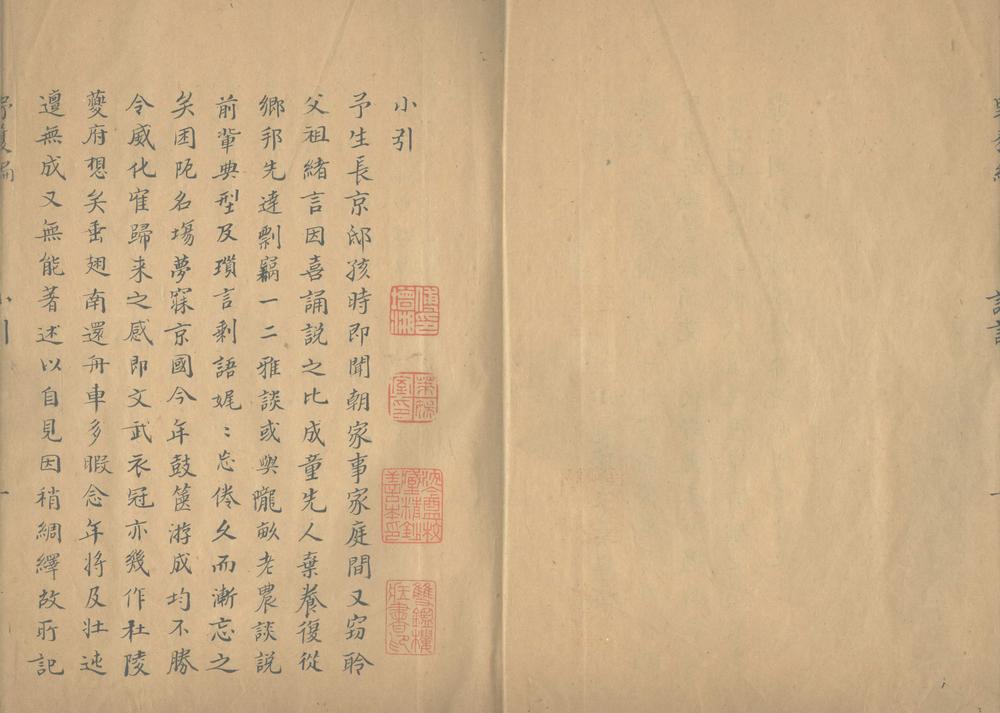 小引
予生長京邸孩時即聞朝家事家庭間又窃聆
父祖緒言因喜誦説之比成童先人棄養復從
鄉邦先達剽竊一二雅談或與隴畝老農談説
前輩典型及瑣言剩語娓〻忘倦久而漸忘之
矣困阨名塲夢寐京國今年鼓篋游成均不勝
令威化隺歸来之感即文武衣冠亦幾作杜陵
夔府想矣垂翅南還舟車多暇念年將及壮迍
邅無成又無能著述以自見因稍綢繹故所記
傅印增湘
萊娛室印
雙鑑樓藏書印
野獲編 小引 一